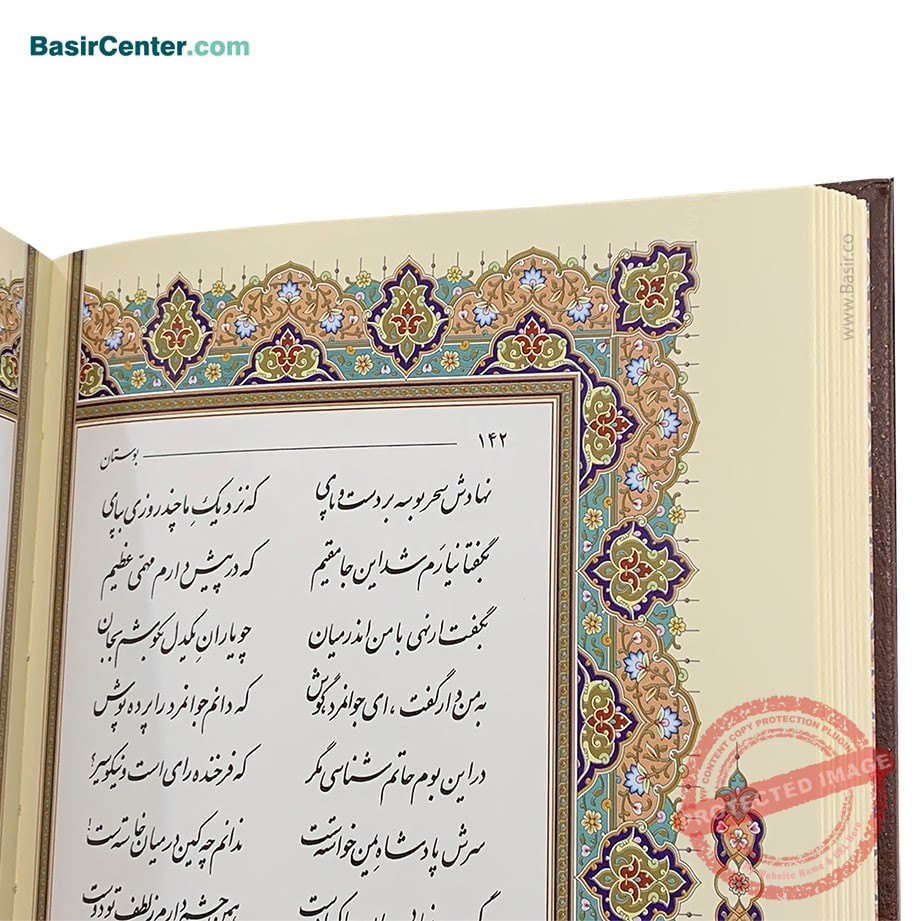 BasirCenter.com
www.Basir.co
۱۴۲ بوستان
نهادش سحر بوسه بر دست و پای که نزدیکِ ما چند روزی بپای
بگفتا نیارَم شد این جا مقیم که در پیش دارم مهمّی عظیم
بگفت ار نهی با من اندر میان چو یارانِ یکدل بکوشم بجان
به من دار گفت، ای جوانمرد گوش که دانم جوانمرد را پرده پوش
در این بوم حاتم شناسی مگر که فرخنده رای است و نیکوسیر؟
سرش پادشاه یمن خواسته ست ندانم چه کین در میان خاسته ست!
همین چشم دارم ز لطف تو دوست
WP CONTENT COPY PROTECTION PLUGIN
PROTECTED IMAGE
My Website Name & URL Here